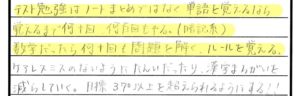 テスト勉強はノートまとめではなく単語を覚えるなら
覚えるまで何十回、何百回もやる。(暗記系)
数学だったら何十回も問題を解く、ルールを覚える。
ケアレスミスのないようにたんいだったり、漢字まちがいを
減らしていく。目標370以上を超えられるようにする!!